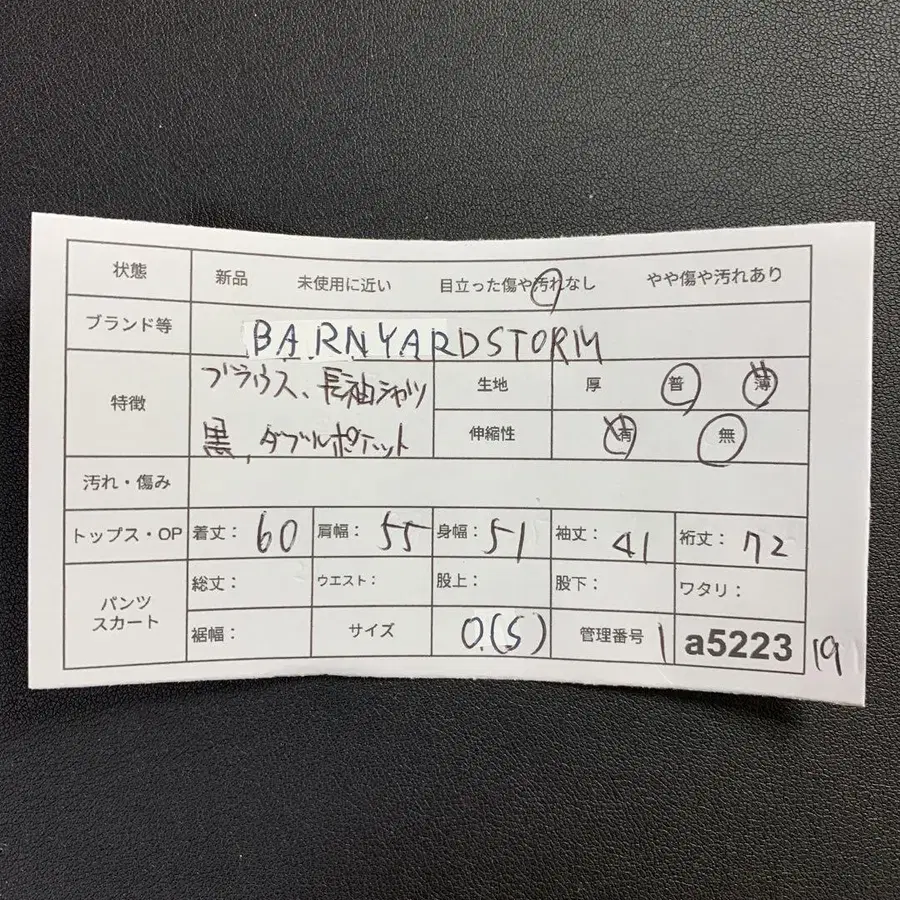 状態 新品 未使用に近い 目立った傷や汚れなし やや傷や汚れあり
ブランド等 BARNYARDSTORM
特徴 ブラウス、長袖シャツ 生地 厚 普 薄
黒、ダブルポケット 伸縮性 有 無
汚れ・傷み
トップス・OP 着丈: 60 肩幅: 55 身幅: 51 袖丈: 41 裄丈: 72
パンツ 総丈: ウエスト: 股上: 股下: ワタリ:
スカート 裾幅: サイズ 0.(S) 管理番号 1 a5223 19